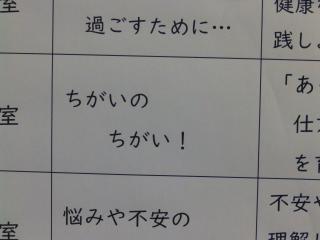 室
過ごすために…
健康
践し
室
ちがいの
ちがい！
「あ
仕
を
室
悩みや不安の
不安や
理解し